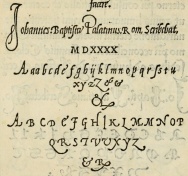 fuare.
Johannes Baptista Palatinus. Rom. Scribebat,
MDXXXX
Aaabcdefgghijklmnopqrſstu
xyzZ&&
&
ABCDEFGHIKLMMNOP
QRSTUVXYZ
&R